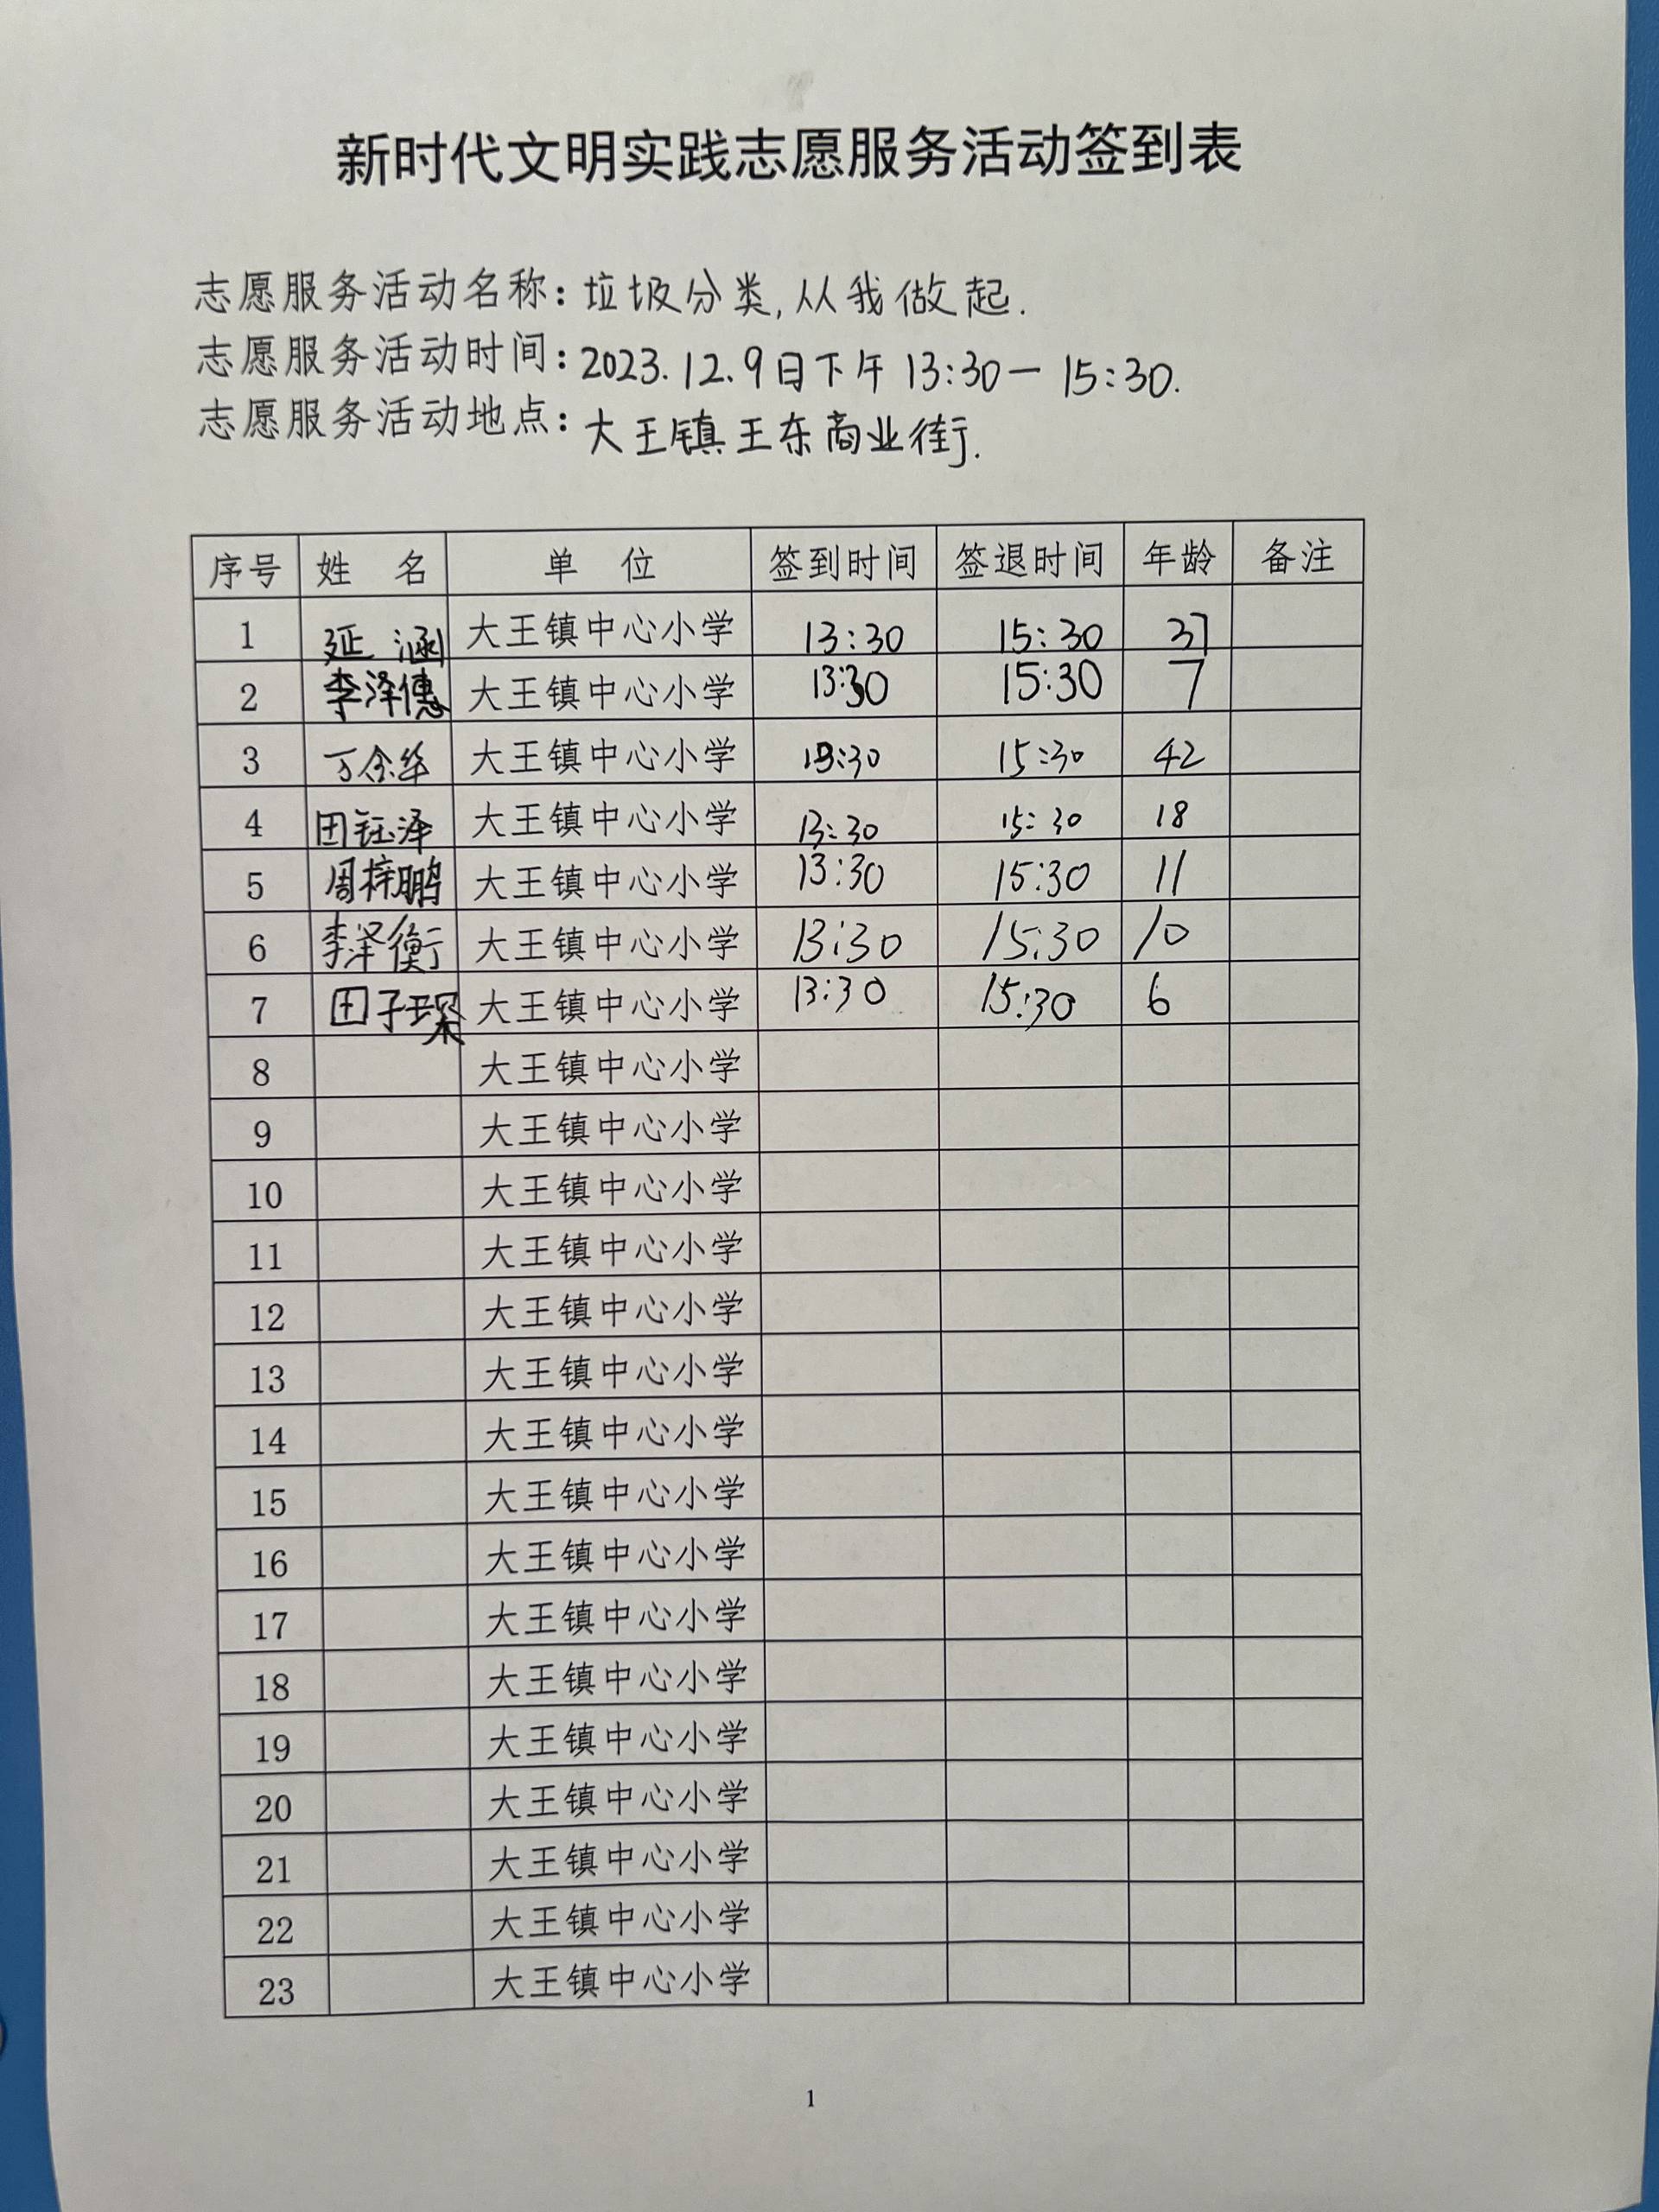 新时代文明实践志愿服务活动签到表
志愿服务活动名称：垃圾分类，从我做起.
志愿服务活动时间：2023.12.9日下午13:30—15:30.
志愿服务活动地点：大王镇王东商业街.
序号 姓 名 单 位 签到时间 签退时间 年龄 备注
1 延涵 大王镇中心小学 13:30 15:30 37
2 李泽 大王镇中心小学 13:30 15:30 7
3 大王镇中心小学 13:30 15:30 42
4 田钰泽 大王镇中心小学 13:30 15:30 18
5 周梓鹏 大王镇中心小学 13:30 15:30 11
6 李泽衡 大王镇中心小学 13:30 15:30 10
7 田子琛 大王镇中心小学 13:30 15:30 6
8 大王镇中心小学
9 大王镇中心小学
10 大王镇中心小学
11 大王镇中心小学
12 大王镇中心小学
13 大王镇中心小学
14 大王镇中心小学
15 大王镇中心小学
16 大王镇中心小学
17 大王镇中心小学
18 大王镇中心小学
19 大王镇中心小学
20 大王镇中心小学
21 大王镇中心小学
22 大王镇中心小学
23 大王镇中心小学
1